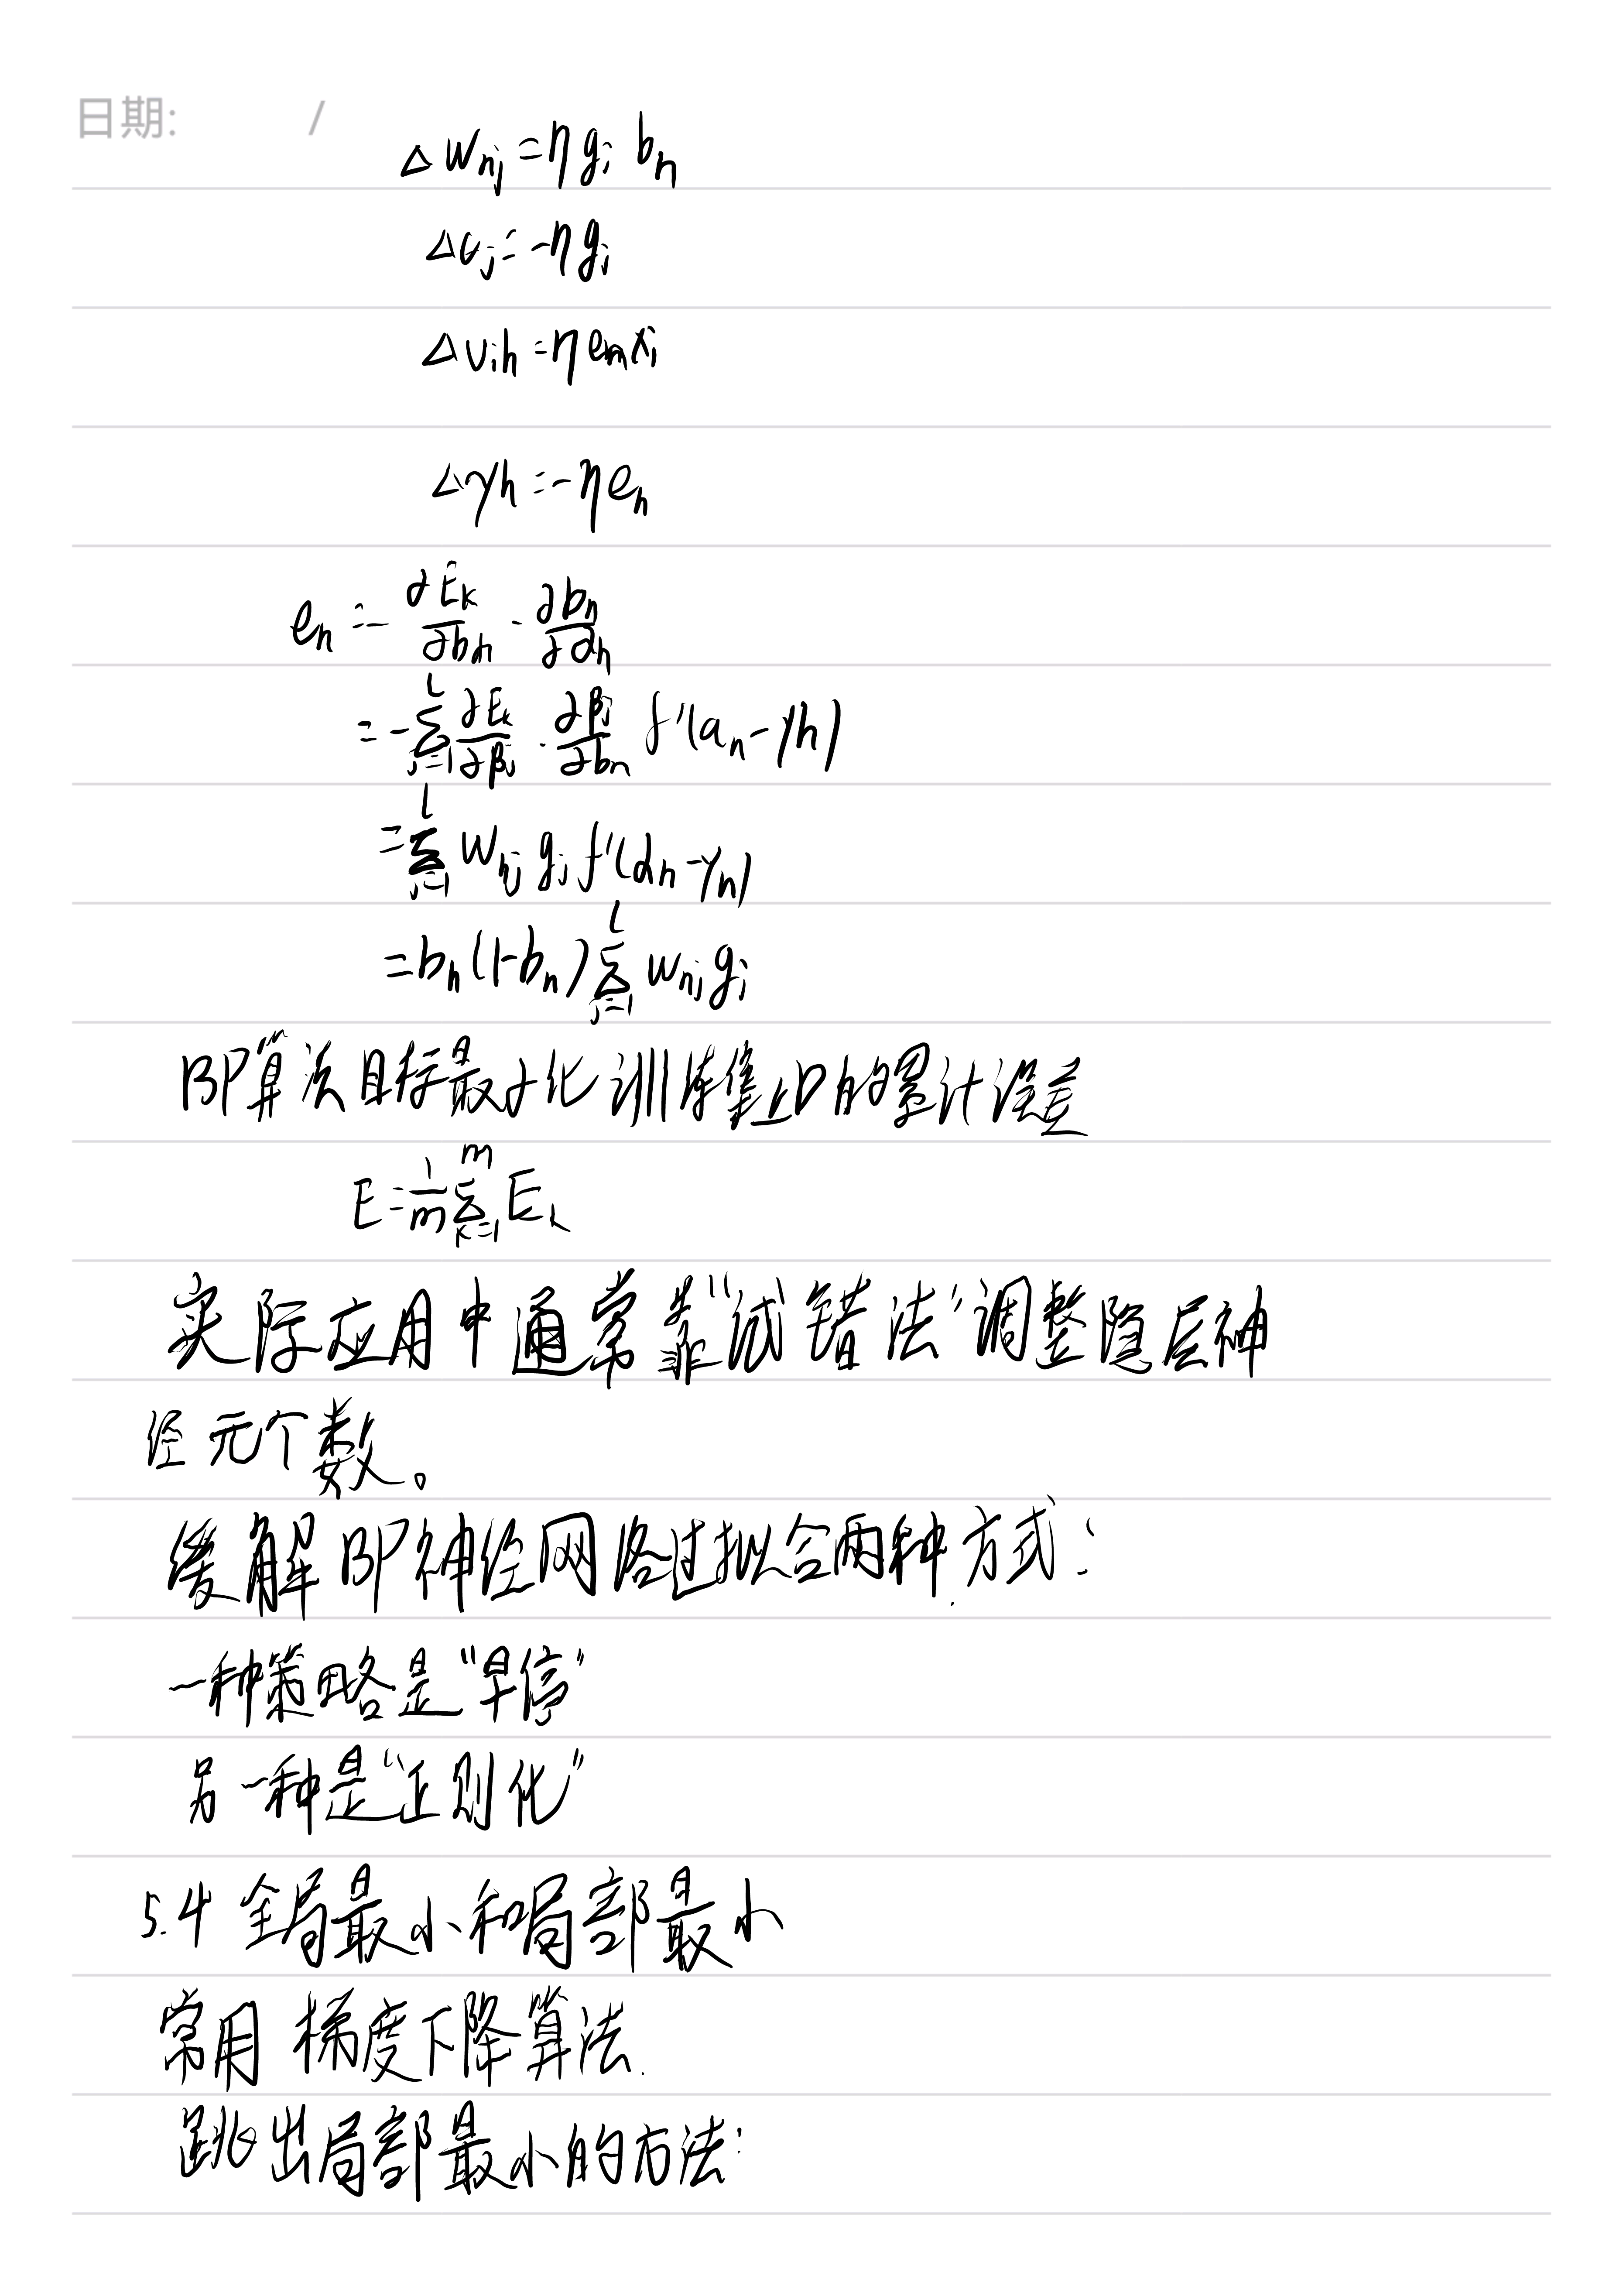 日期: /
Δw_{hj} = ηg_j b_h
Δθ_j = -ηg_j
Δv_{ih} = ηe_h x_i
Δγ_h = -ηe_h
e_h = -∂E_k/∂b_h · ∂b_h/∂α_h
= -∑_{j=1}^{l} ∂E_k/∂β_j · ∂β_j/∂b_h f'(α_h - γ_h)
= ∑_{j=1}^{l} w_{hj} g_j f'(α_h - γ_h)
= b_h(1-b_h) ∑_{j=1}^{l} w_{hj} g_j
BP算法目标最小化训练集上D的累计误差
E = 1/m ∑_{k=1}^{m} E_k
实际应用中通常靠“试错法”调整隐层神
经元个数。
缓解BP神经网络过拟合两种方式:
一种策略是“早停”
另一种是“正则化”
5.4 全局最小和局部最小
常用 梯度下降算法.
跳出局部最小的方法: